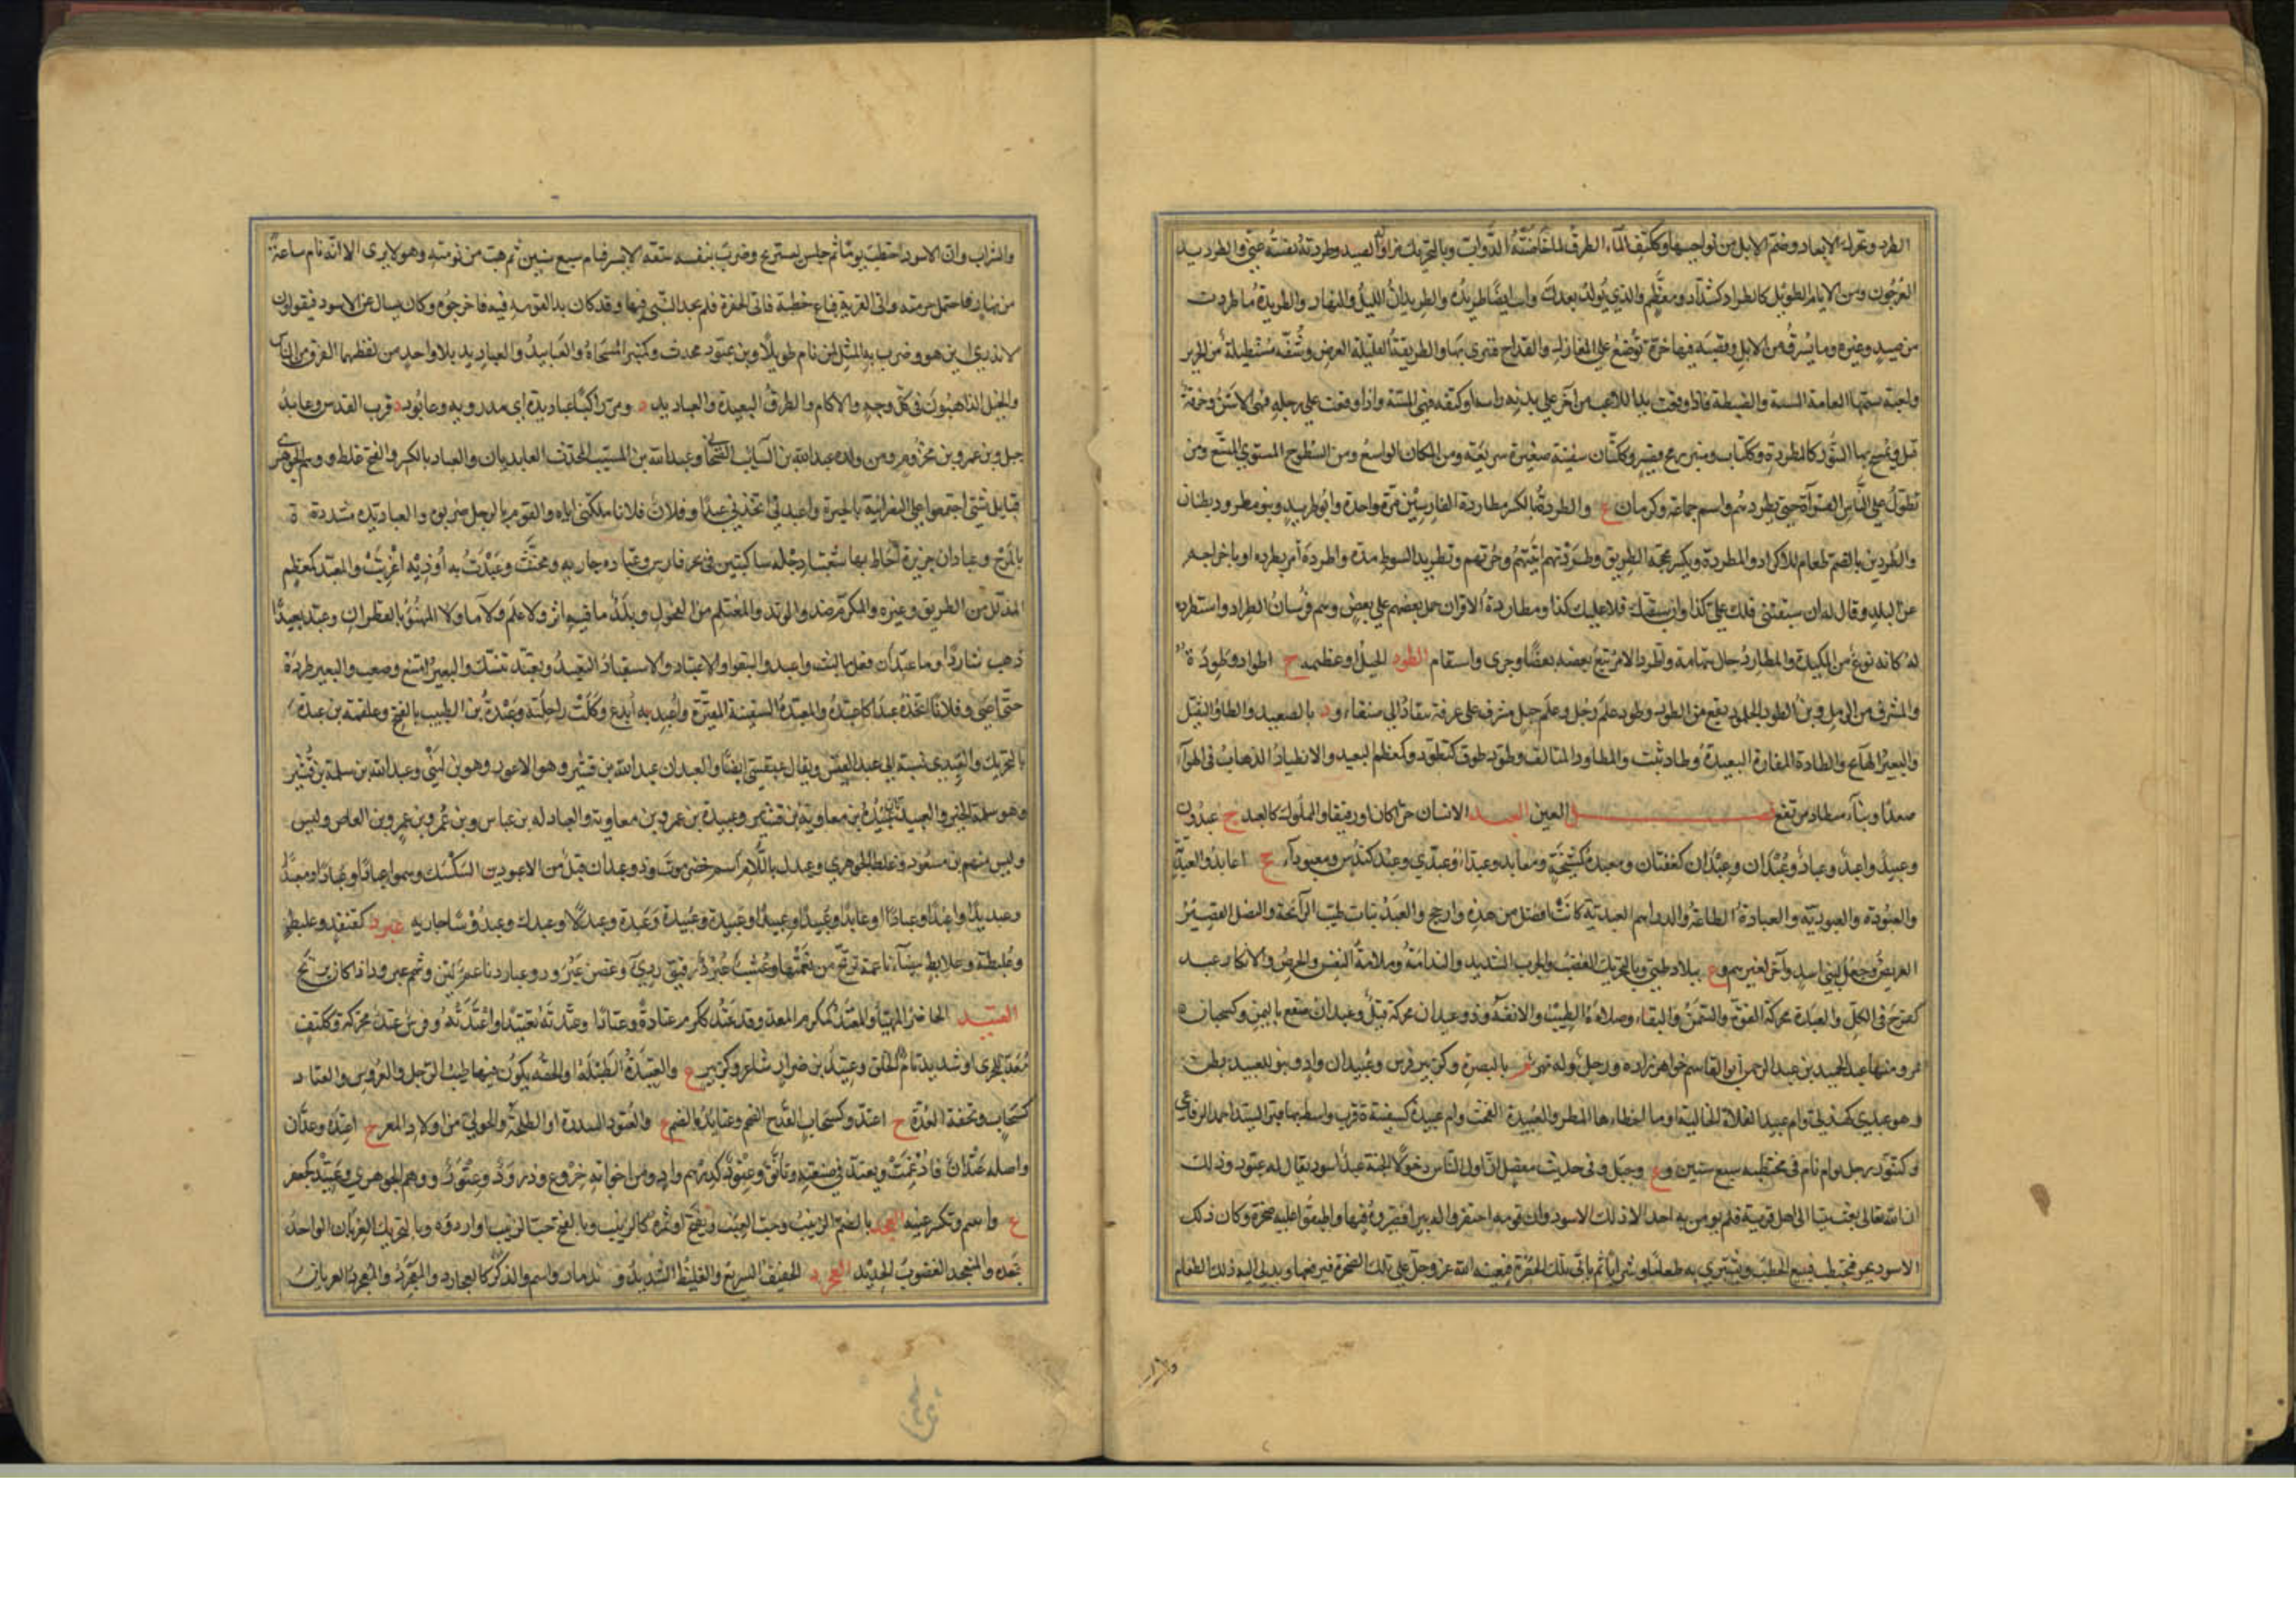 الطرد ويحرك الابعاد وضم الابل من نواحيها وككتف الماء الطرق لما خاضته الدواب وبالتحريك مزاولة الصيد وطردته نفيته عني والطريد
العرجون ومن الايام الطويل كالطراد كشداد ومعظم والذي يولد بعدك وانت ايضا طريده والطريدان الليل والنهار والطريدة ما طردت
من صيد وغيره وما يسرق من الابل وقصبة فيها حزة توضع على المغازل والقداح فتبرى بها والطريقة القليلة العرض وشقة مستطيلة من الحرير
ولعبة تسميها العامة المسة والضبطة فاذا وقعت يد اللاعب من آخر على بدنه راسه او كتفه فهي المسة واذا وقعت على رجله فهي الاسن وخرقة
تبل ويمسح بها التنور كالمطردة وككتاب ومنبر رمح قصير وككتان سفينة صغيرة سريعة ومن المكان الواسع ومن السطوح المستوي المتسع ومن
يطول على الناس القراءة حتى يطردهم واسم جماعة وكرمان ع والطردة بالكسر مطاردة الفارسين مرة واحدة وابو طريد وبنو مطرود بطنان
والطردين بالضم طعام للاكراد والمطردة ويكسر محجة الطريق وطردتهم اتيتهم وجزتهم وتطريد السوط مده واطرده امر بطرده او باخراجه
عن البلد وقال له ان سبقتني فلك علي كذا وان سبقتك فلي عليك كذا ومطاردة الاقران حمل بعضهم على بعض وهم فرسان الطراد واستطرد
له كانه نوع من المكيدة والمطارد جبال بتهامة واطرد الامر تبع بعضه بعضا وجرى واستقام الطود الجبل او عظيمه ج اطواد وطودة
والمشرف من الرمل وبن الطود الجلمود يقع من الطود وطود علم رجل وعلم جبل مشرف على عرفة ينقاد الى صنعاء ود بالصعيد والطاد الثقيل
والبعير الهائج والطادة المفازة البعيدة وطاد ثبت والمطاود المتالف وطود طوف كتطود وكمعظم البعيد والانطياد الذهاب في الهواء
صعدا وبناء منطاد مرتفع فصل العين العبد الانسان حرا كان او رقيقا والمملوك كالعبدل ج عبدون
وعبيد واعبد وعباد وعبدان وعبدان كعفتان ومعبدة كمشيخة ومعابد وعبداء وعبدى وعبد كندس ومعبوداء ج اعابد والعبدية
والعبودة والعبودية والعبادة الطاعة والدراهم العبدية كانت افضل من هذه وارجح والعبد نبات طيب الرائحة والنصل القصير
العريض وجبل لبني اسد وآخر لغيرهم وع ببلاد طيئ وبالتحريك الغضب والجرب الشديد والندامة وملامة النفس والحرص والانكار عبد
كفرح في الكل والعبدة محركة القوة والسمن والبقاء وصلاءة الطيب والانفة وذو عبدان محركة قيل وعبدان صقع باليمن وكسحبان ة
بمرو منها عبد الحميد بن عبد الرحمن ابو القاسم خواهرزاده ورجل وله نهر م بالبصرة وكزبير فرس وعبيدان واد وبنو العبيد بطن
وهو عبدي كهذلي وام عبيد الفلاة الخالية او ما اخطاءها المطر والعبيدة الفحث وام عبيدة كسفينة ة قرب واسط بها قبر السيد احمد الرفاعي
وكتنور رجل نوام نام في محتطبه سبع سنين وع وجبل وفي حديث معضل ان اول الناس دخولا الجنة عبد اسود يقال له عبود وذلك
ان الله تعالى بعث نبيا الى اهل قرية فلم يومن به احد الا ذلك الاسود وان قومه احتفروا له بيرا فصيروه فيها واطبقوا عليه صخرة وكان ذلك
الاسود يخرج فيحتطب فيبيع الحطب ويشتري به طعاما وشرابا ثم ياتي تلك الحفرة فيعينه الله عز وجل على تلك الصخرة فيرفعها ويدلي اليه ذلك الطعام
والشراب وان الاسود احتطب يوما ثم جلس ليستريح وضرب بنفسه شقه الايسر فنام سبع سنين ثم هب من نومته وهو لا يرى الا انه نام ساعة
من نهار فاحتمل حزمته واتى القرية فباع حطبه فاتى الحفرة فلم يجد النبي فيها وقد كان بدا لقومه فيه فاخرجوه وكان يسال عن الاسود فيقولون
لا ندري اين هو وضرب به المثل لمن نام طويلا وبن عبود محدث وكمنبر المسحاة والعبابيد والعباديد بلا واحد من لفظهما الفرق من الناس
والخيل الذاهبون في كل وجه والاكام والطرق البعيدة والعباديد ع ومر راكبا عباديده اي مذرويه وعابود د قرب القدس وعابد
جبل وبن عمرو بن مخزوم ومن ولده عبد الله بن السائب الصحابي وعبد الله بن المسيب المحدث العابديان والعباد بالكسر والفتح غلط ووهم الجوهري
قبايل شتى اجتمعوا على النصرانية بالحيرة واعبدني اتخذني عبدا وفلان فلانا ملكني اياه والقوم بالرجل ضربوه والعبادية مشددة ة
بالمرج وعبادان جزيرة احاط بها شعبتا دجلة ساكبتين في بحر فارس وعبادة جارية ومخنث وعبدت به اوذيه اغريت والمعبد كمعظم
المذلل من الطريق وغيره والمكرم ضد والوتد والمغتلم من الفحول وبلد ما فيه اثر ولا علم ولا ماء ولا المهنو بالقطران وعبد تعبيدا
ذهب شاردا وما عبد ان فعل ما لبث واعبدوا اجتمعوا والاعتباد والاستعباد التعبيد وتعبد تنسك والبعير امتنع وصعب والبعير طرده
حتى اعيى وفلانا اتخذه عبدا كاعتبده والمعبدة السفينة المقيرة واعبد به ابدع وكلت راحلته وعبدة بن الطبيب بالفتح وعلقمة بن عبدة
بالتحريك والعبدي نسبة الى عبد القيس ويقال عبقسي ايضا والعبدان عبد الله بن قشير وهو الاعور وهو بن لبينى وعبد الله بن سلمة بن قشير
وهو سلمة الخير والعبيدتان عبيدة بن معاوية بن قشير وعبيدة بن عمرو بن معاوية والعبادلة بن عباس وبن عمر وبن عمرو بن العاص وليس
وليس منهم بن مسعود وغلط الجوهري وعبدل باللام اسم حضرموت وذو عبدان قيل من الاعبود بن السكسك وسموا عبادا وعبادا ومعبدا
وعبديدا واعبدا وعبادا وعابدا وعبيدا وعبيدا وعبيدة وعبيدة وعبدة وعبدلا وعبدك وعبدوسا جارية عبرد كقنفذ وعلبط
وعلبطة وعلابط بيضاء ناعمة ترتج من نعمتها وعشب عبرد رقيق رديء وغصن عبرود وعبارد ناعم لين وشحم عبرود اذا كان يرتج
العتيد الحاضر المهيا والمعتد كمكرم المعد وقد عتد ككرم عتادة وعتادا وعتدته تعتيدا واعتدته وفرس عتد محركة وككتف
معد للجري او شديد تام الخلق وعتيد بن ضرار شاعر وكزبير ع والعتيدة الطبلة او الحقة يكون فيها طيب الرجل والعروس والعتاد
كسحاب وتحفة العدة ج اعتد وكسحاب القدح الضخم وعتايد بالضم ع والعتود السدرة او الطلحة والحولي من اولاد المعز ج اعتدة وعدان
واصله عتدان فادغمت وتعتد في صنعته تانق وعتود كدرهم واد ومن اخواته خروع وذرود وعتور ووهم الجوهري وعتيد كجعفر
ع واسم وتكسر عينه العجد بالضم الزبيب وحب العنب ويفتح او ثمرة كالزبيب وبالفتح حب الزبيب او اردؤه وبالتحريك الغربان الواحدة
عجدة والمتعجد الغضوب الحديد العجرد الخفيف السريع والغليظ الشديد واسم والذكر كالعجارد والمعجرد والمعجرد العريان